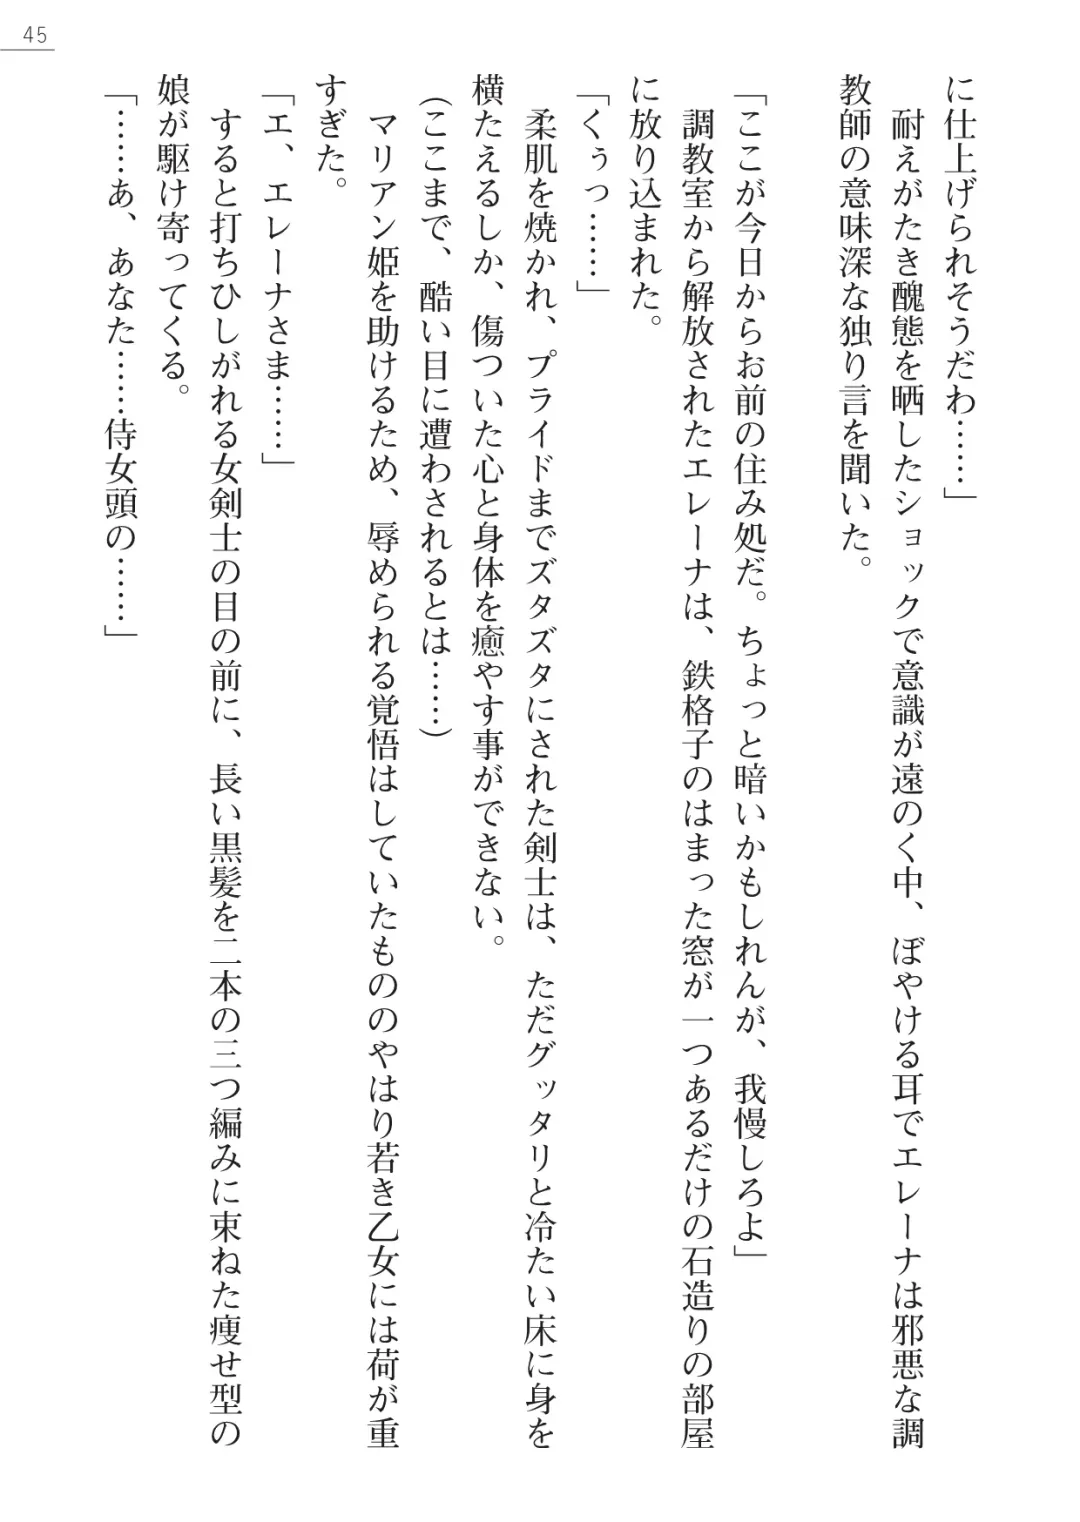 45
に仕上げられそうだわ……」
　耐えがたき醜態を晒したショックで意識が遠のく中、ぼやける耳でエレーナは邪悪な調
教師の意味深な独り言を聞いた。
「ここが今日からお前の住み処だ。ちょっと暗いかもしれんが、我慢しろよ」
　調教室から解放されたエレーナは、鉄格子のはまった窓が一つあるだけの石造りの部屋
に放り込まれた。
「くぅっ……」
　柔肌を焼かれ、プライドまでズタズタにされた剣士は、ただグッタリと冷たい床に身を
横たえるしか、傷ついた心と身体を癒やす事ができない。
（ここまで、酷い目に遭わされるとは……）
　マリアン姫を助けるため、辱められる覚悟はしていたもののやはり若き乙女には荷が重
すぎた。
「エ、エレーナさま……」
　すると打ちひしがれる女剣士の目の前に、長い黒髪を二本の三つ編みに束ねた痩せ型の
娘が駆け寄ってくる。
「……あ、あなた……侍女頭の……」